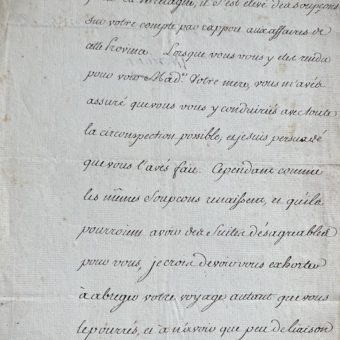 la Bretagne, il s'est élevé des soupçons
sur votre compte par rappor aux affaires de
cette Province. Lorsque vous vous y etes rendu
pour voir Mad.e Votre mere, vous m'avés
assuré que vous vous y conduiriés avec toute
la circonspection possible, et je suis persuadé
que vous l'avés fait. Cependant comme
les mêmes Soupçons renaissent, et qu'ils
pourroient avoir des Suites désagreables
pour vous, je crois devoir vous exhorter
à abreger votre voyage autant que vous
le pourrés, et à n'avoir que peu de liaison